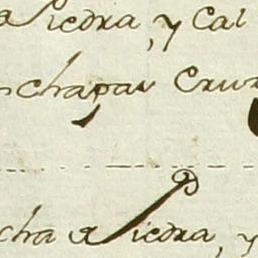 Piedra, y Cal
chapar Cru
cha Piedra, y